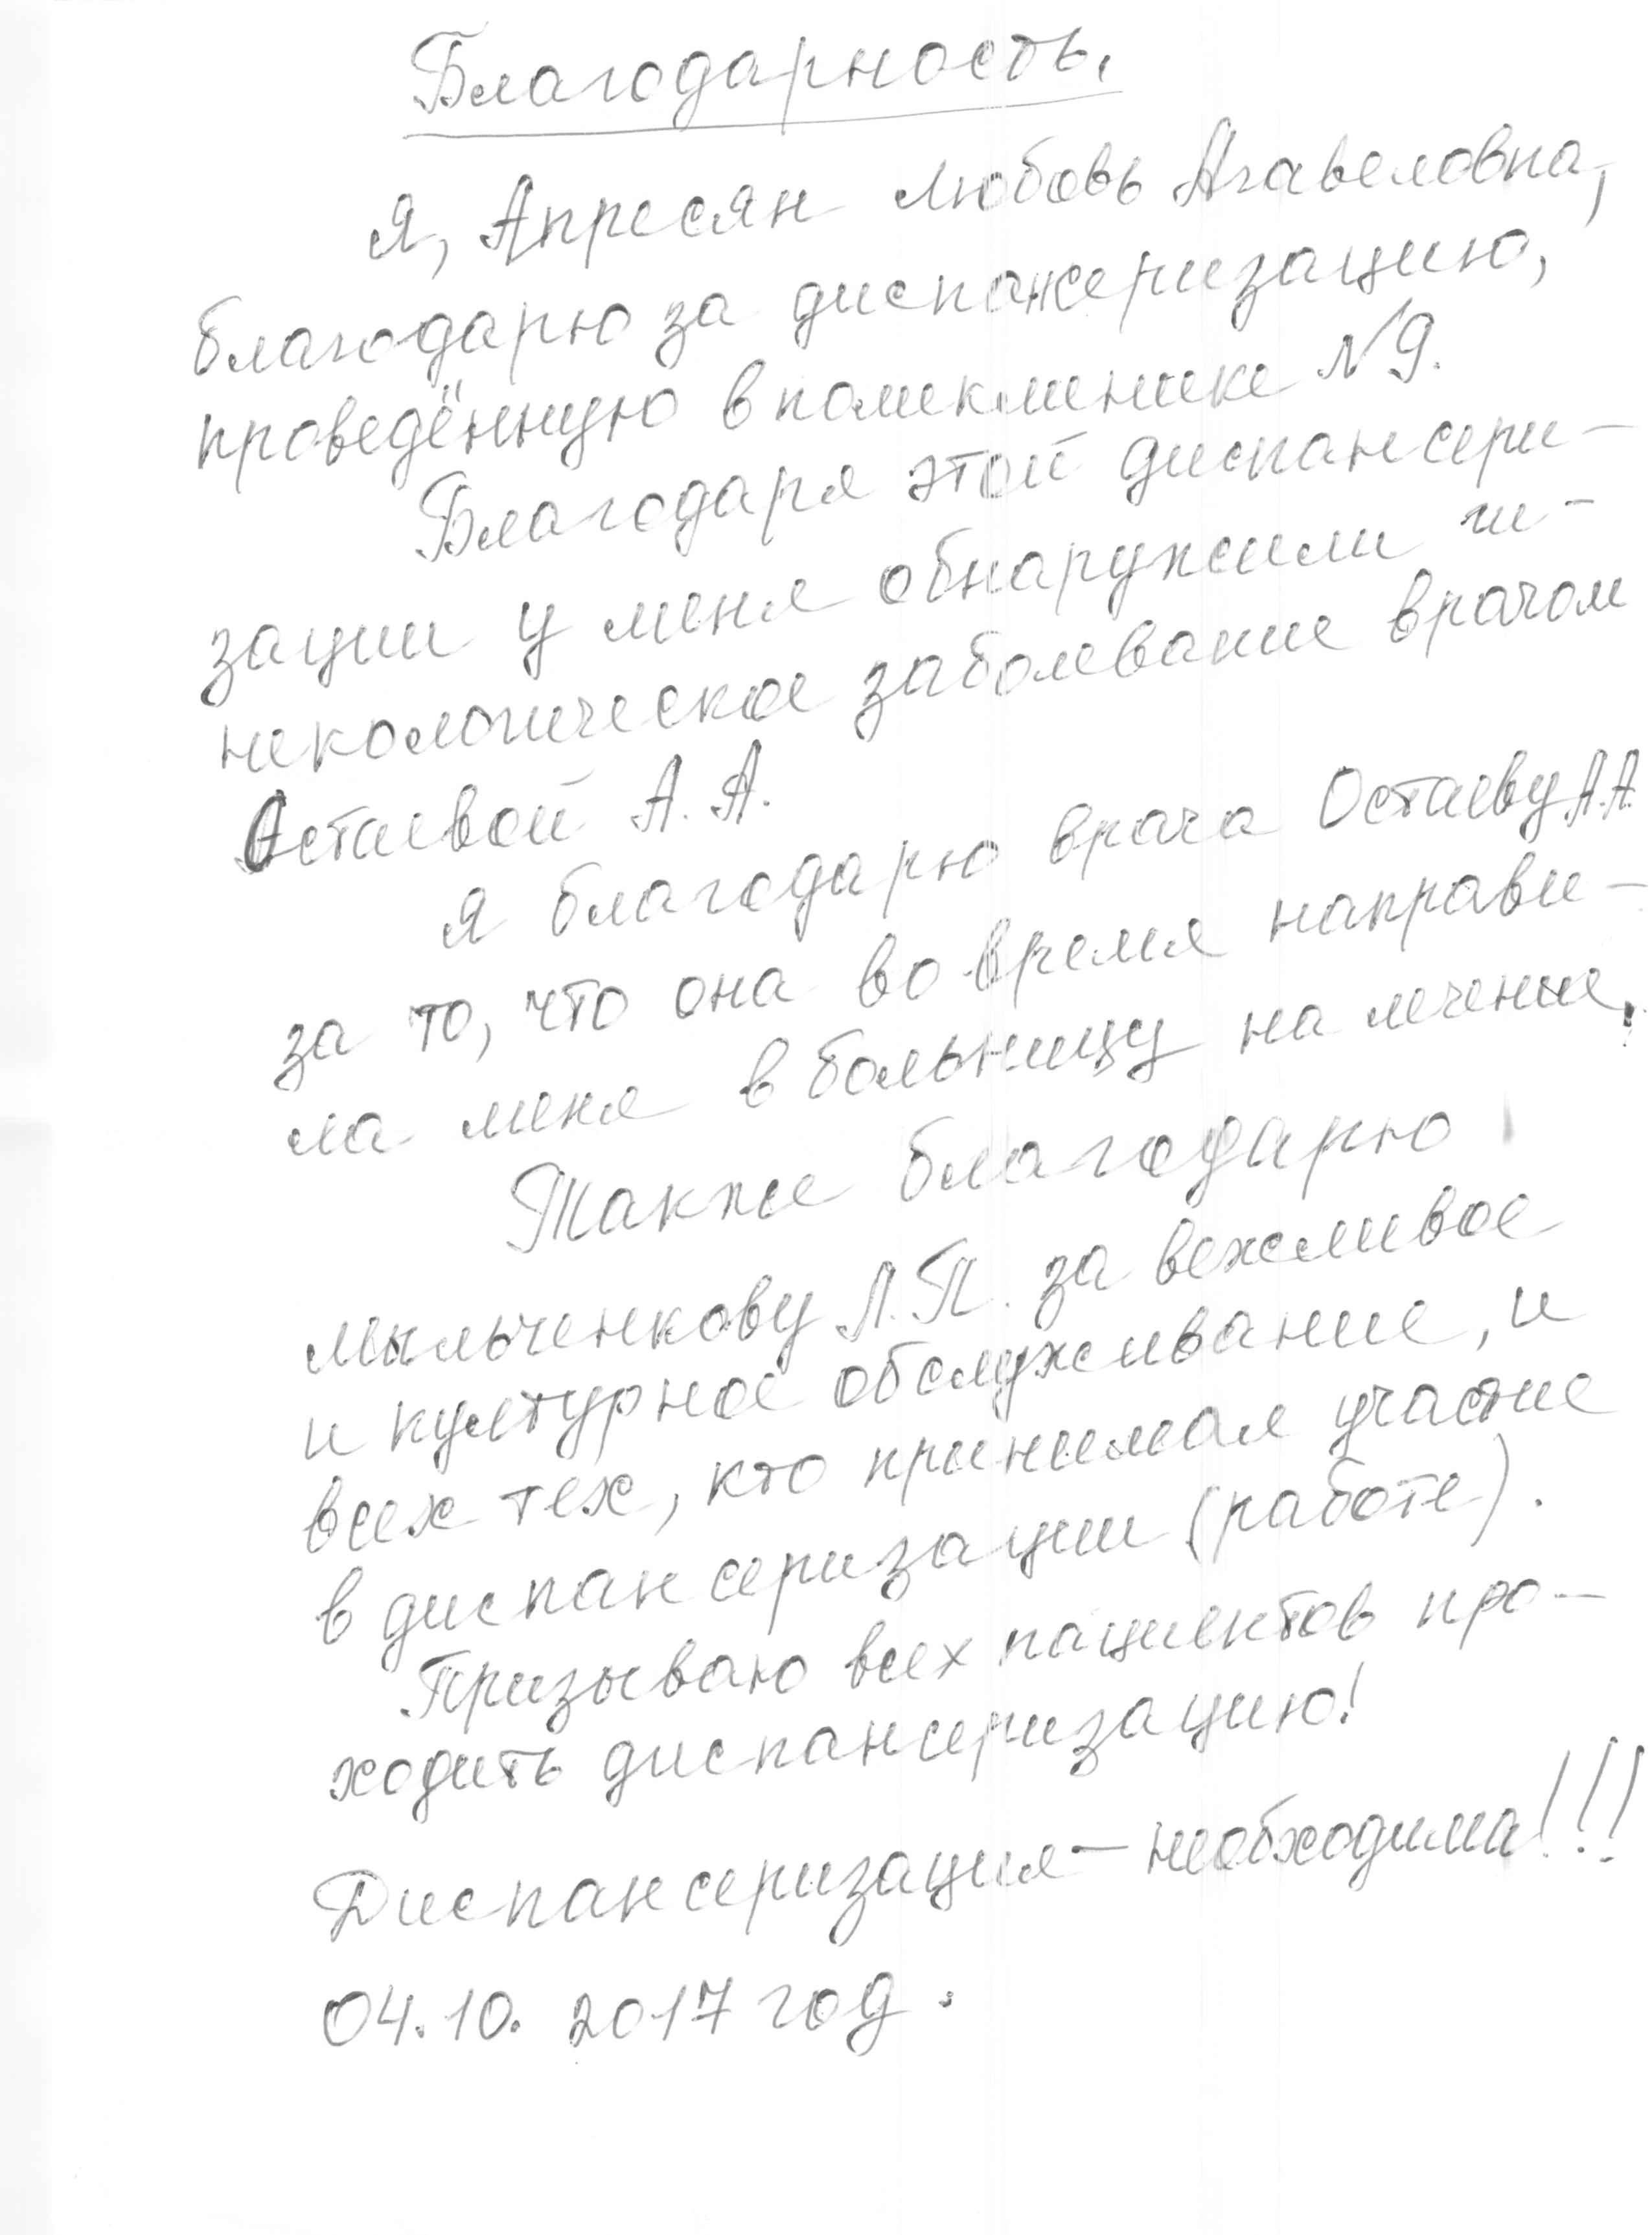 Благодарность.
Я, Апресян Любовь Агавеловна,
благодарю за диспансеризацию,
проведённую в поликлинике №9.
Благодаря этой диспансери-
зации у меня обнаружили ги-
некологическое заболевание врачом
Остаевой А.А.
Я благодарю врача Остаеву А.А.
за то, что она во время направи-
ла меня в больницу на лечение.
Также благодарю
Мыльченкову Л.П. за вежливое
и културное обслуживание, и
всех тех, кто принимал участие
в диспансеризации (работе).
Призываю всех пациентов про-
ходить диспансеризацию!
Диспансеризация - необходима!!!
04.10.2017 год.